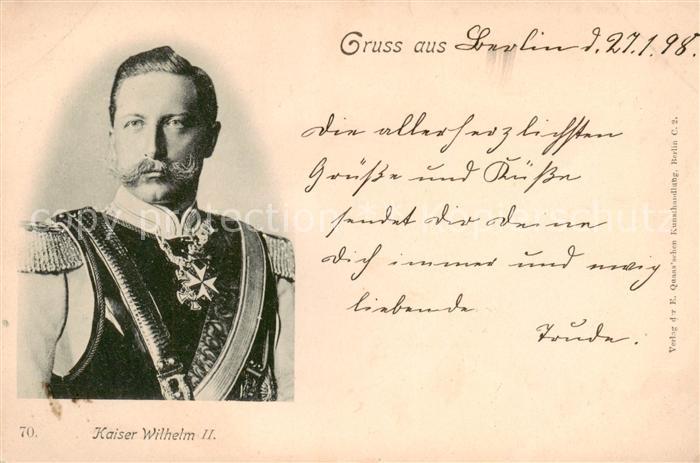 Gruss aus Berlin d. 27.1.98.
Die allerherzlichsten
Grüße und Küße
sendet Dir Deine
Dich immer und ewig
liebende
Trude.
copyright protection / Kopierschutz
70. Kaiser Wilhelm II.
Verlag der E. Quaas'schen Kunsthandlung, Berlin C. 2.